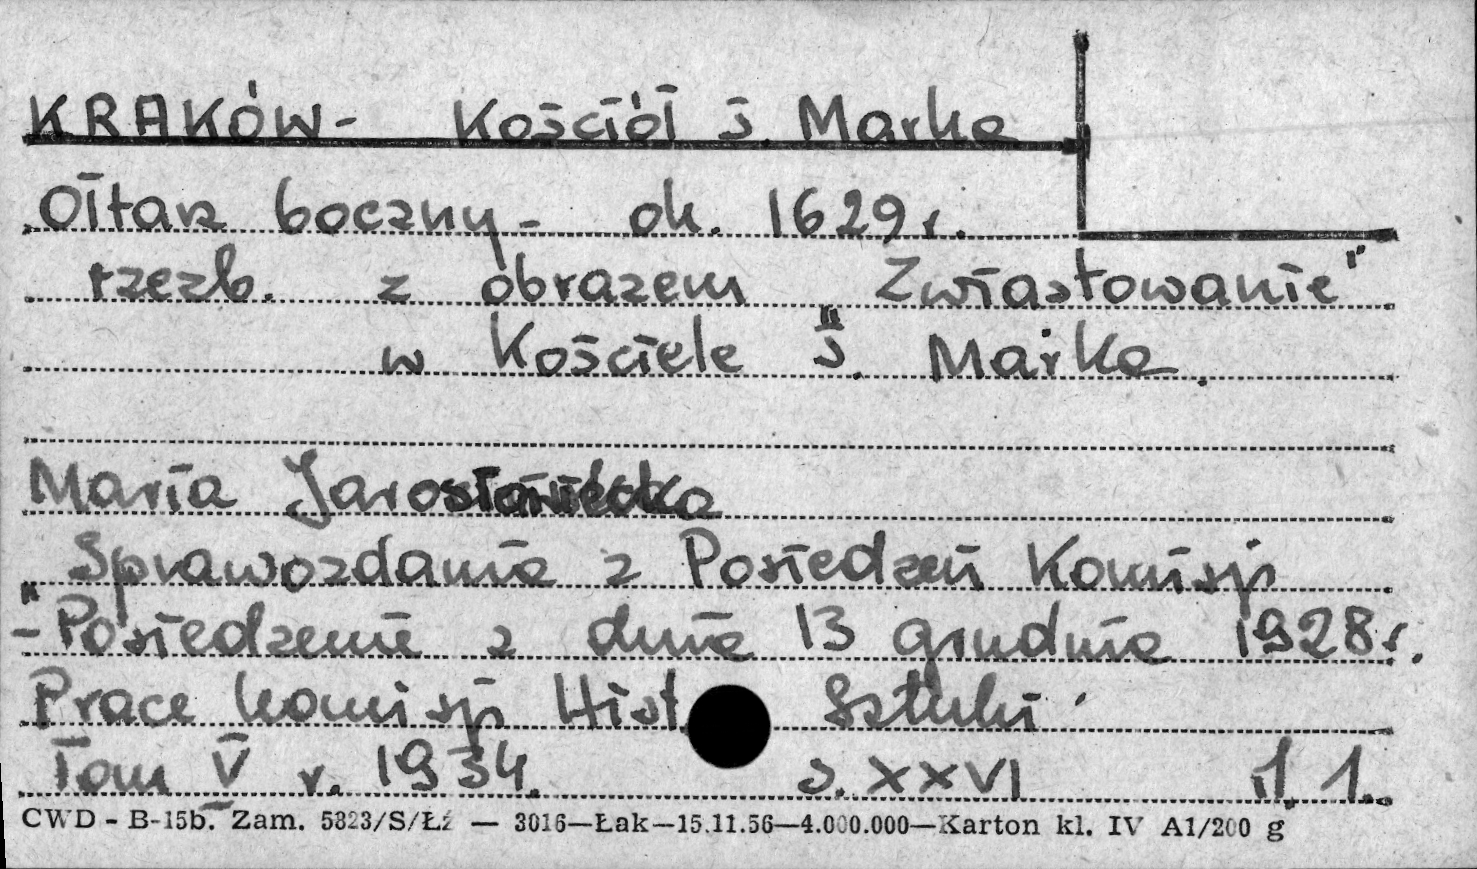 KRAKÓW - Kościół ś. Marka
Ołtarz boczny - ok. 1629 r.
rzezb. z obrazem „Zwiastowanie"
w Kościele ś. Marka.
Maria
Sprawozdania z Posiedzeń Komisji
"- Posiedzenie z dnia 13 grudnia 1928 r.
Prace Komisji Hist. Sztuki
Tom V r. 1934. s. XXVI il. 1.
CWD - B-15b. Zam. 5323/S/Łź — 3016—Łak—15.11.56—4.000.000—Karton kl. IV A1/200 g